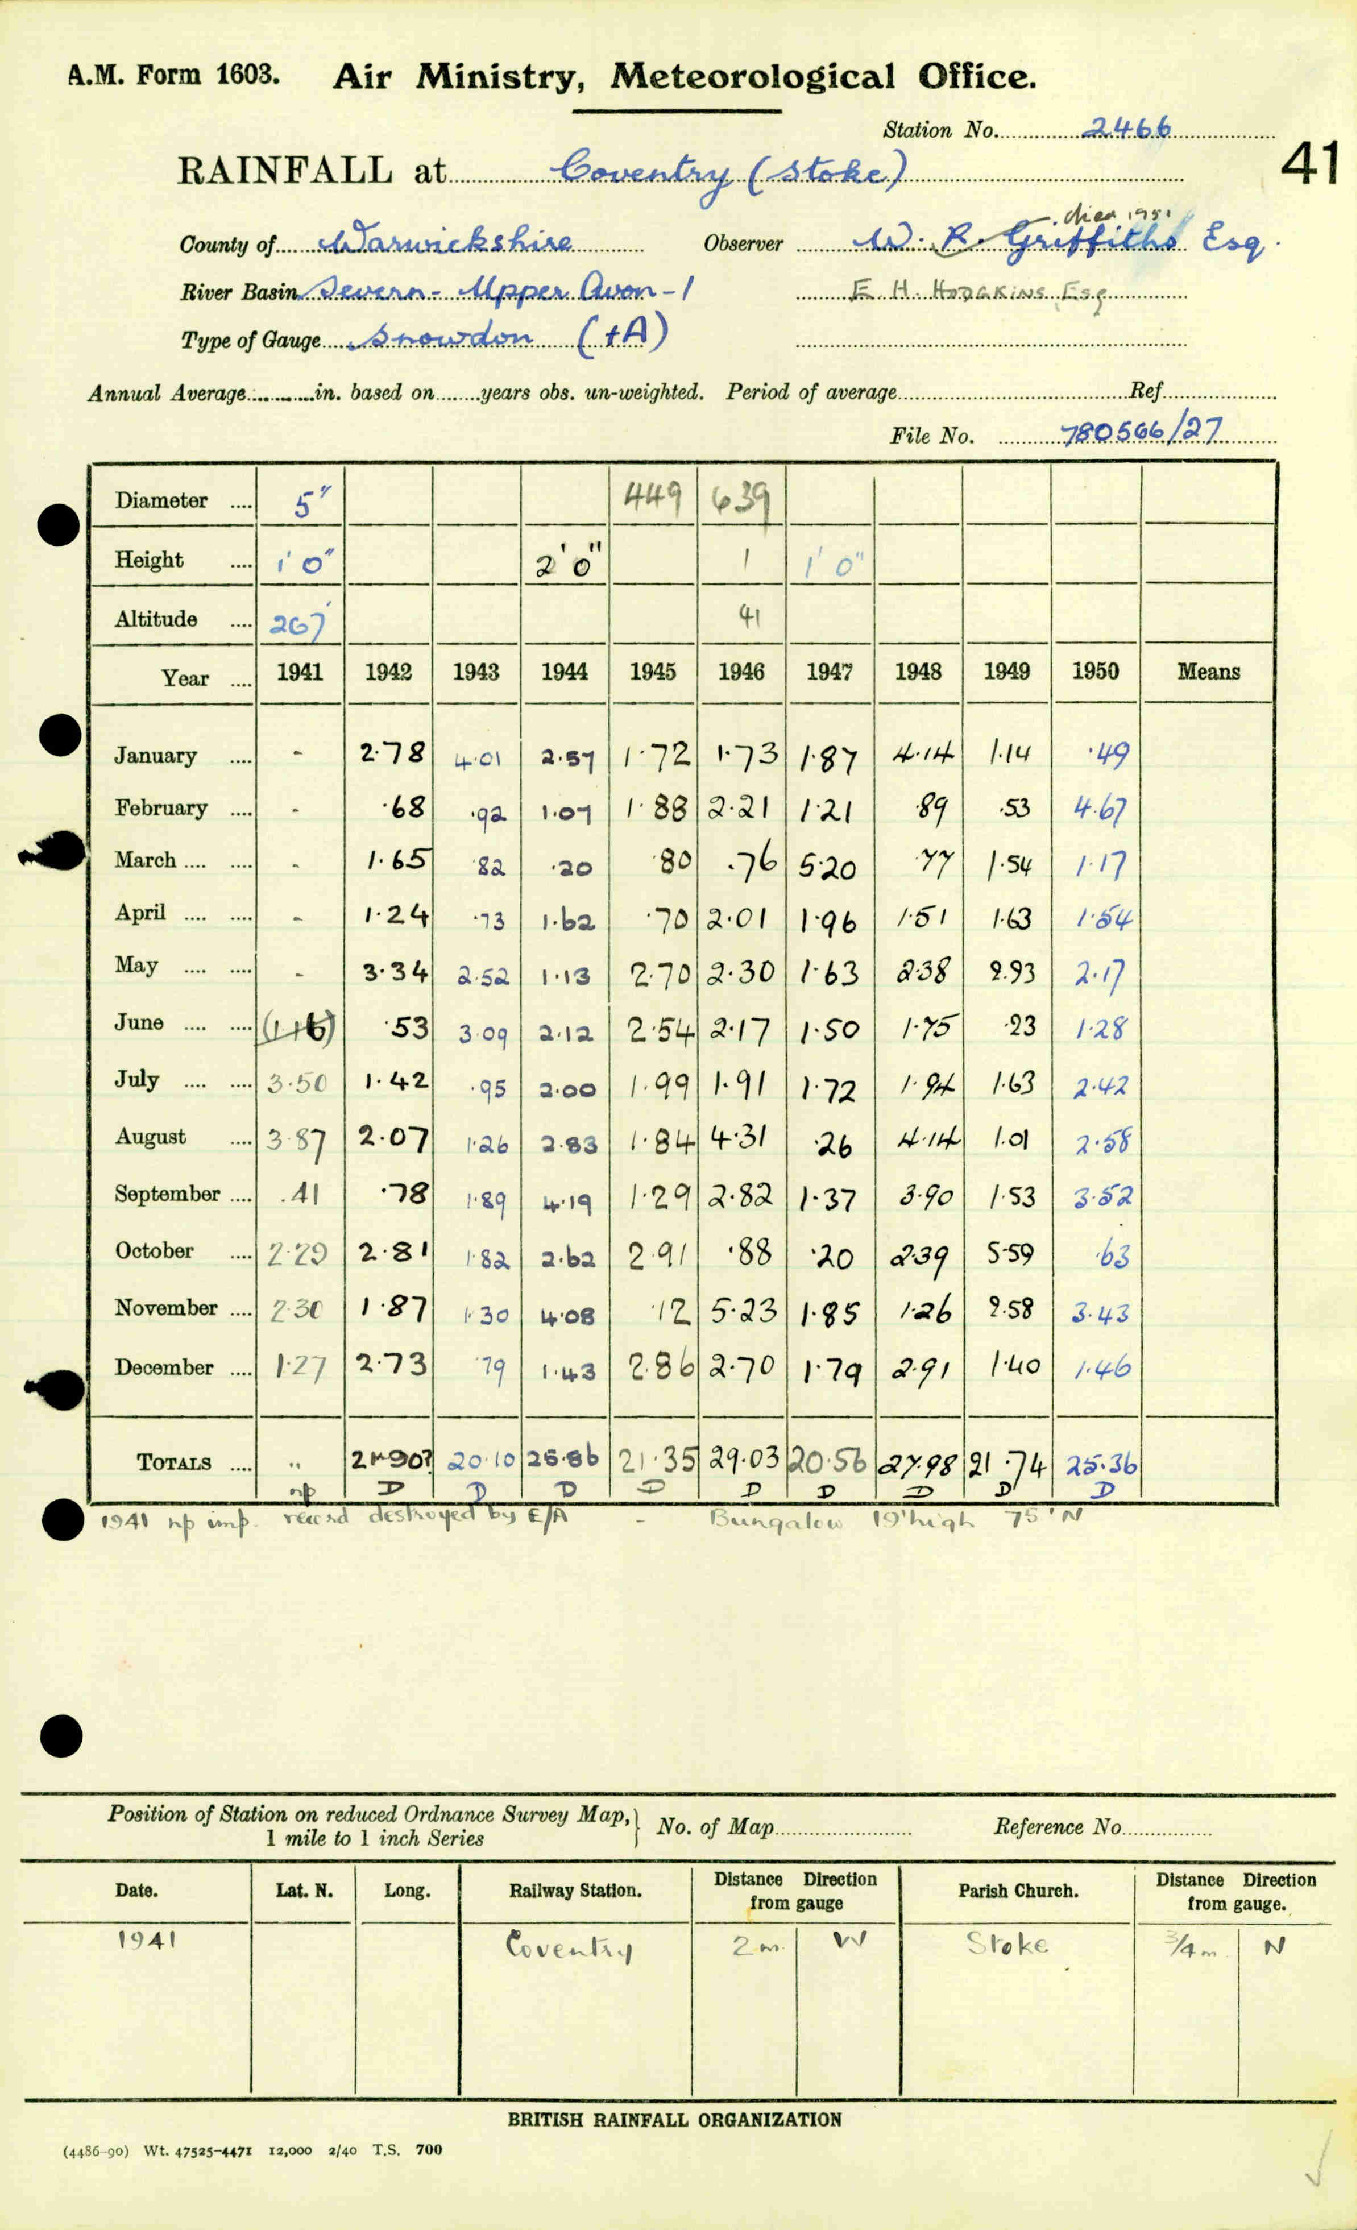 A.M. Form 1603. Air Ministry, Meteorological Office.
Station No. 2466
41
RAINFALL at Coventry (Stoke)
died 1951
County of Warwickshire Observer W. R. Griffiths Esq.
River Basin Severn - Upper Avon - 1 E. H. HODGKINS Esq
Type of Gauge Snowdon (+A)
Annual Average in. based on years obs. un-weighted. Period of average Ref.
File No. 780566/27
Diameter .... 5" 449 639
Height .... 1' 0" 2' 0" 1 1' 0"
Altitude .... 267' 41
Year .... 1941 1942 1943 1944 1945 1946 1947 1948 1949 1950 Means
January .... - 2.78 4.01 2.57 1.72 1.73 1.87 4.14 1.14 .49
February .... - .68 .92 1.07 1.88 2.21 1.21 .89 .53 4.67
March .... .... - 1.65 .82 .20 .80 .76 5.20 .77 1.54 1.17
April .... .... - 1.24 .73 1.62 .70 2.01 1.96 1.51 1.63 1.54
May .... .... - 3.34 2.52 1.13 2.70 2.30 1.63 2.38 2.93 2.17
June .... .... (1.16) .53 3.09 2.12 2.54 2.17 1.50 1.75 .23 1.28
July .... .... 3.50 1.42 .95 2.00 1.99 1.91 1.72 1.94 1.63 2.42
August .... 3.87 2.07 1.26 2.83 1.84 4.31 .26 4.14 1.01 2.58
September .... .41 .78 1.89 4.19 1.29 2.82 1.37 3.90 1.53 3.52
October .... 2.29 2.81 1.82 2.62 2.91 .88 .20 2.39 5.59 .63
November .... 2.30 1.87 1.30 4.08 .12 5.23 1.85 1.26 2.58 3.43
December .... 1.27 2.73 .79 1.43 2.86 2.70 1.79 2.91 1.40 1.46
TOTALS .... " 21.90? 20.10 25.86 21.35 29.03 20.56 27.98 21.74 25.36
np D D D D D D D D D
1941 np imp. record destroyed by E/A - Bungalow 19' high 75' N
Position of Station on reduced Ordnance Survey Map,
1 mile to 1 inch Series } No. of Map Reference No.
Date. Lat. N. Long. Railway Station. Distance from gauge Direction Parish Church. Distance from gauge. Direction
1941 Coventry 2 m. W Stoke 3/4 m. N
BRITISH RAINFALL ORGANIZATION
(4486-90) Wt. 47525-4471 12,000 2/40 T.S. 700